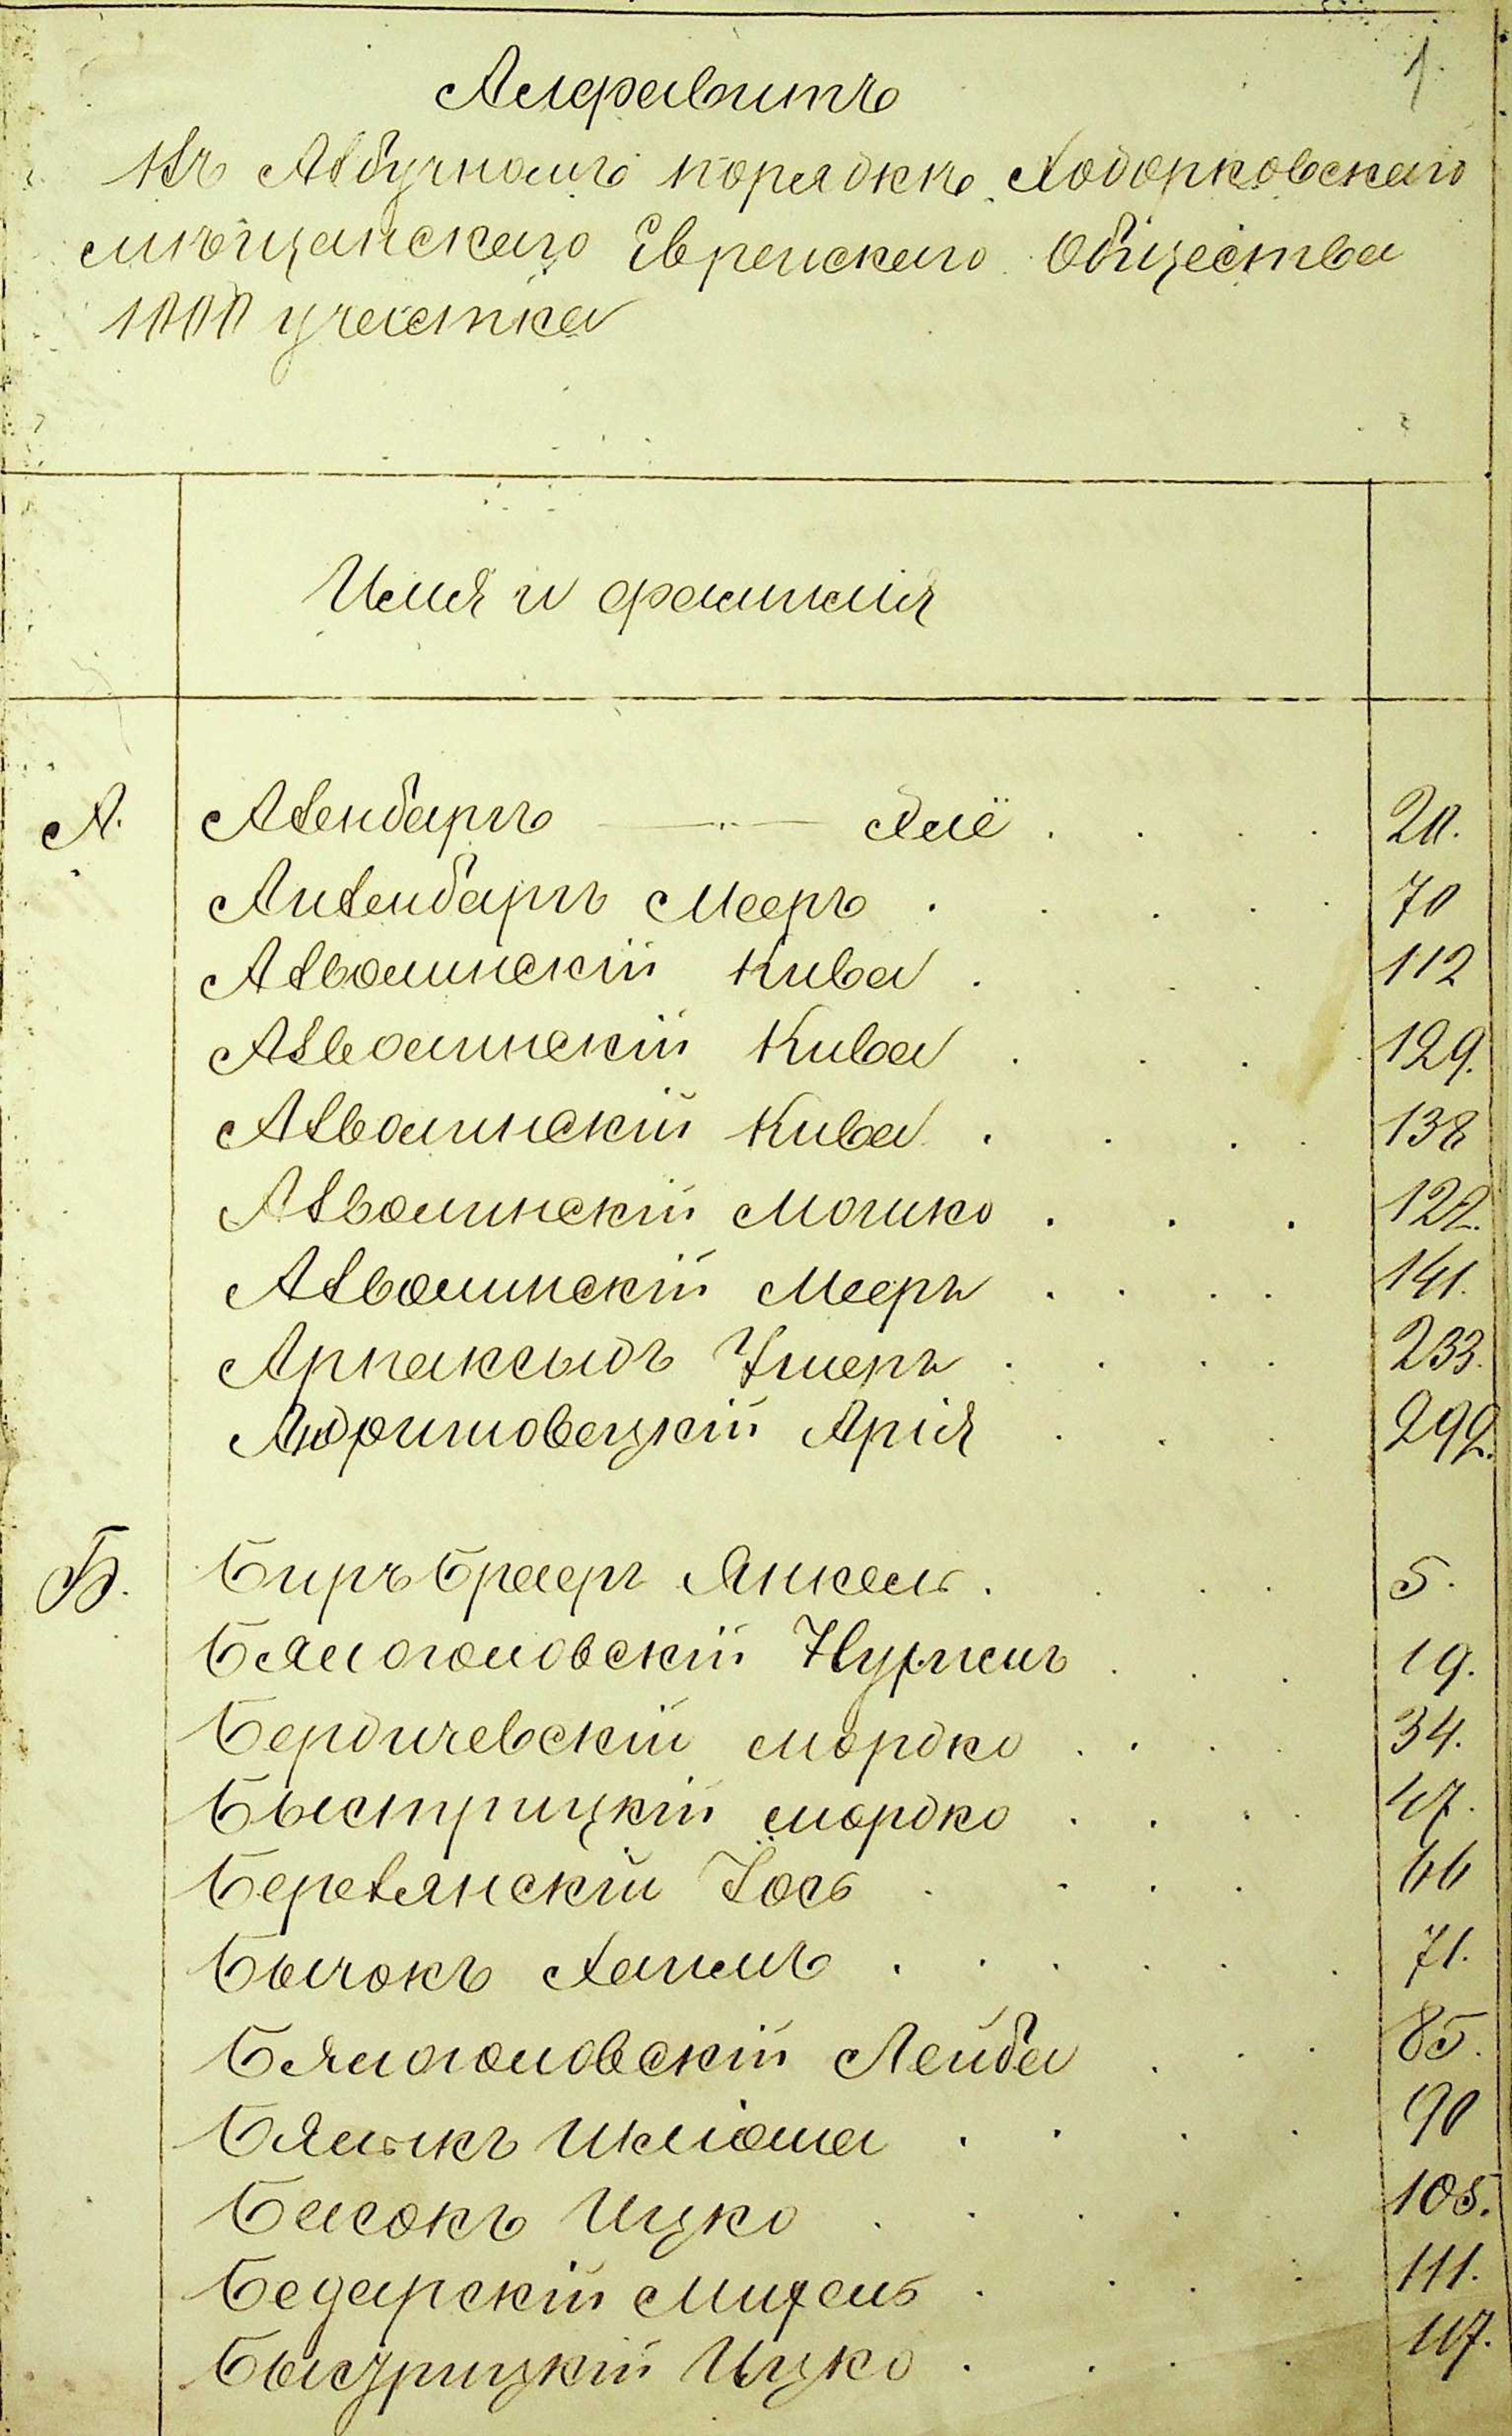 1.
Алфавитъ
въ Азбучномъ порядкѣ Ходорковскаго
мѣщанскаго Еврейскаго Общества
1000 участка
Имя и фамилія
А. Азенбаргъ Элё 20.
Аизенбаргъ Мееръ 70
Азволинскій Кива 112
Азволинскій Кива 129.
Азволинскій Кива 138
Азволинскій Мошко
Азволинскій Мееръ 141.
Арпаксыдъ Умеръ 233.
Арія 292.
Б. Биръ Браеръ Янкель. 5.
Бялоголовскій Нухимъ 19.
Бердичевскій мордко 34.
Быстрицкій мордко 47.
Березянскій Іось 66
Бычокъ Хаимъ 71.
Бялоголовскій Лейба 85.
Бялыкъ Шліома 90
Басокъ Ицко 105.
Бедарскій Михель 111.
Быстрицкій Ицко 117.